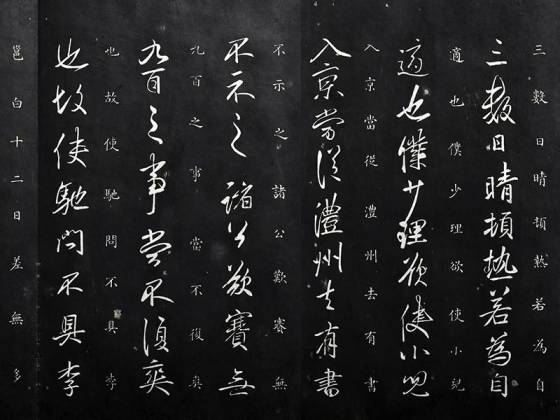 三數日晴頓熱若為自
三數日晴頓熱若為自
適也僕少理欲使小紀
適也僕少理欲使小兒
入京當從澧州去有書
入京當從澧州去有書
不示之諸公歎賽無
不示之諸公歎賽無
九百之事當不復爽
九百之事當不須爽
也故使馳問不具李
也故使馳問不具李
邕白十二日差無多